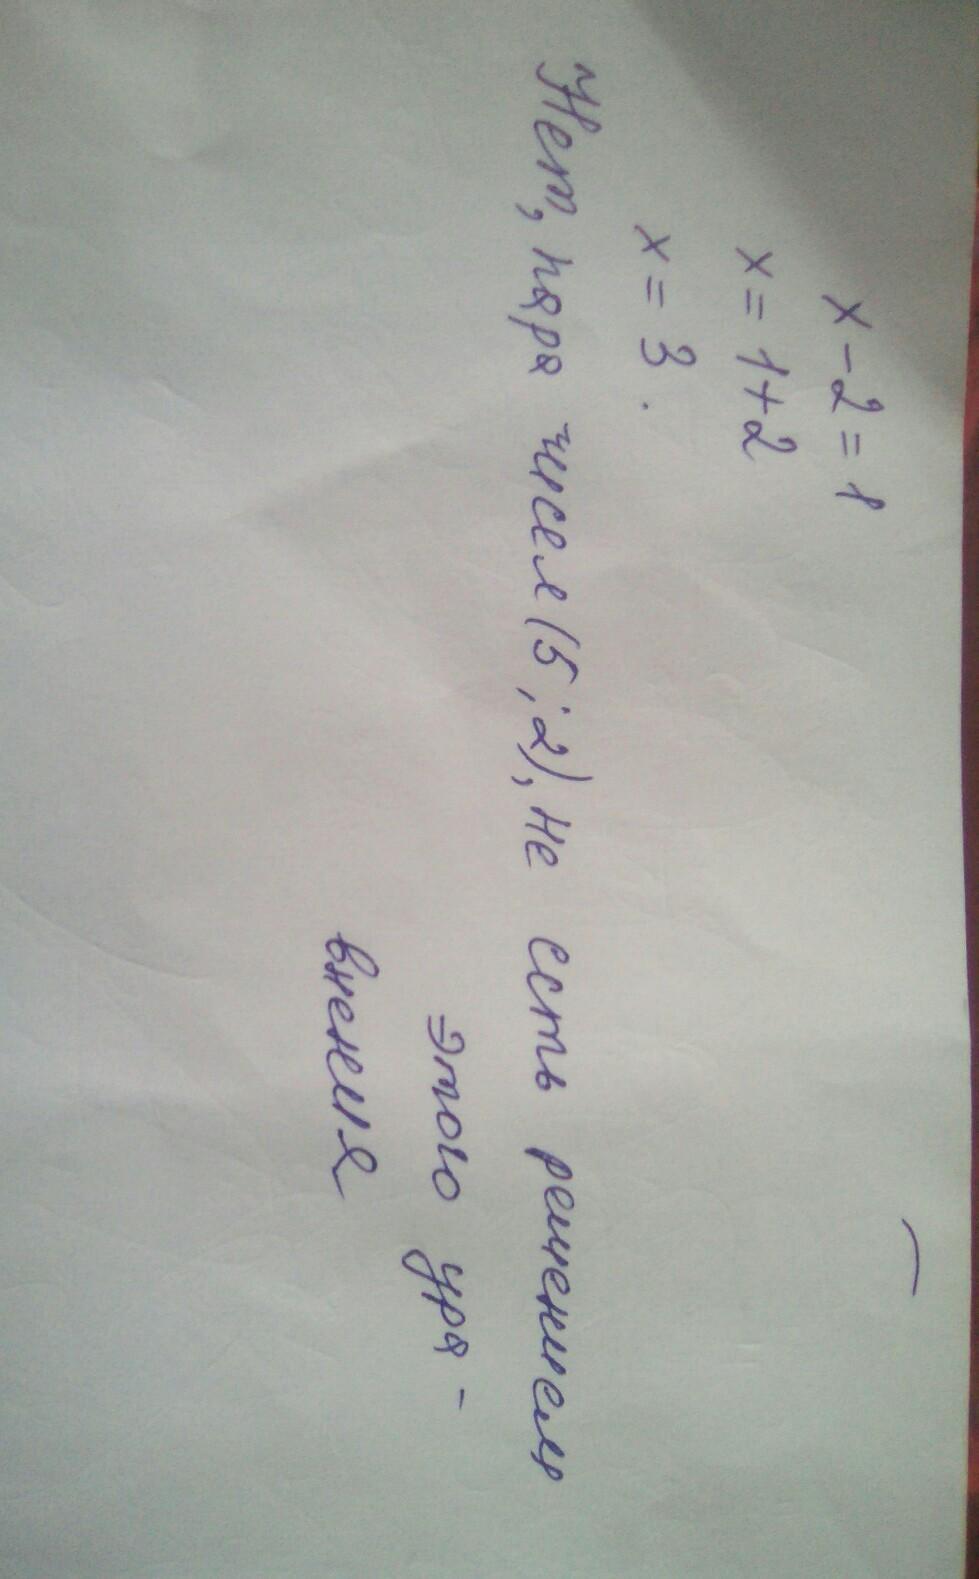 x - 2 = 1
x = 1 + 2
x = 3.
Нет, пара чисел (5;2), не есть решением
этого ура-
внения